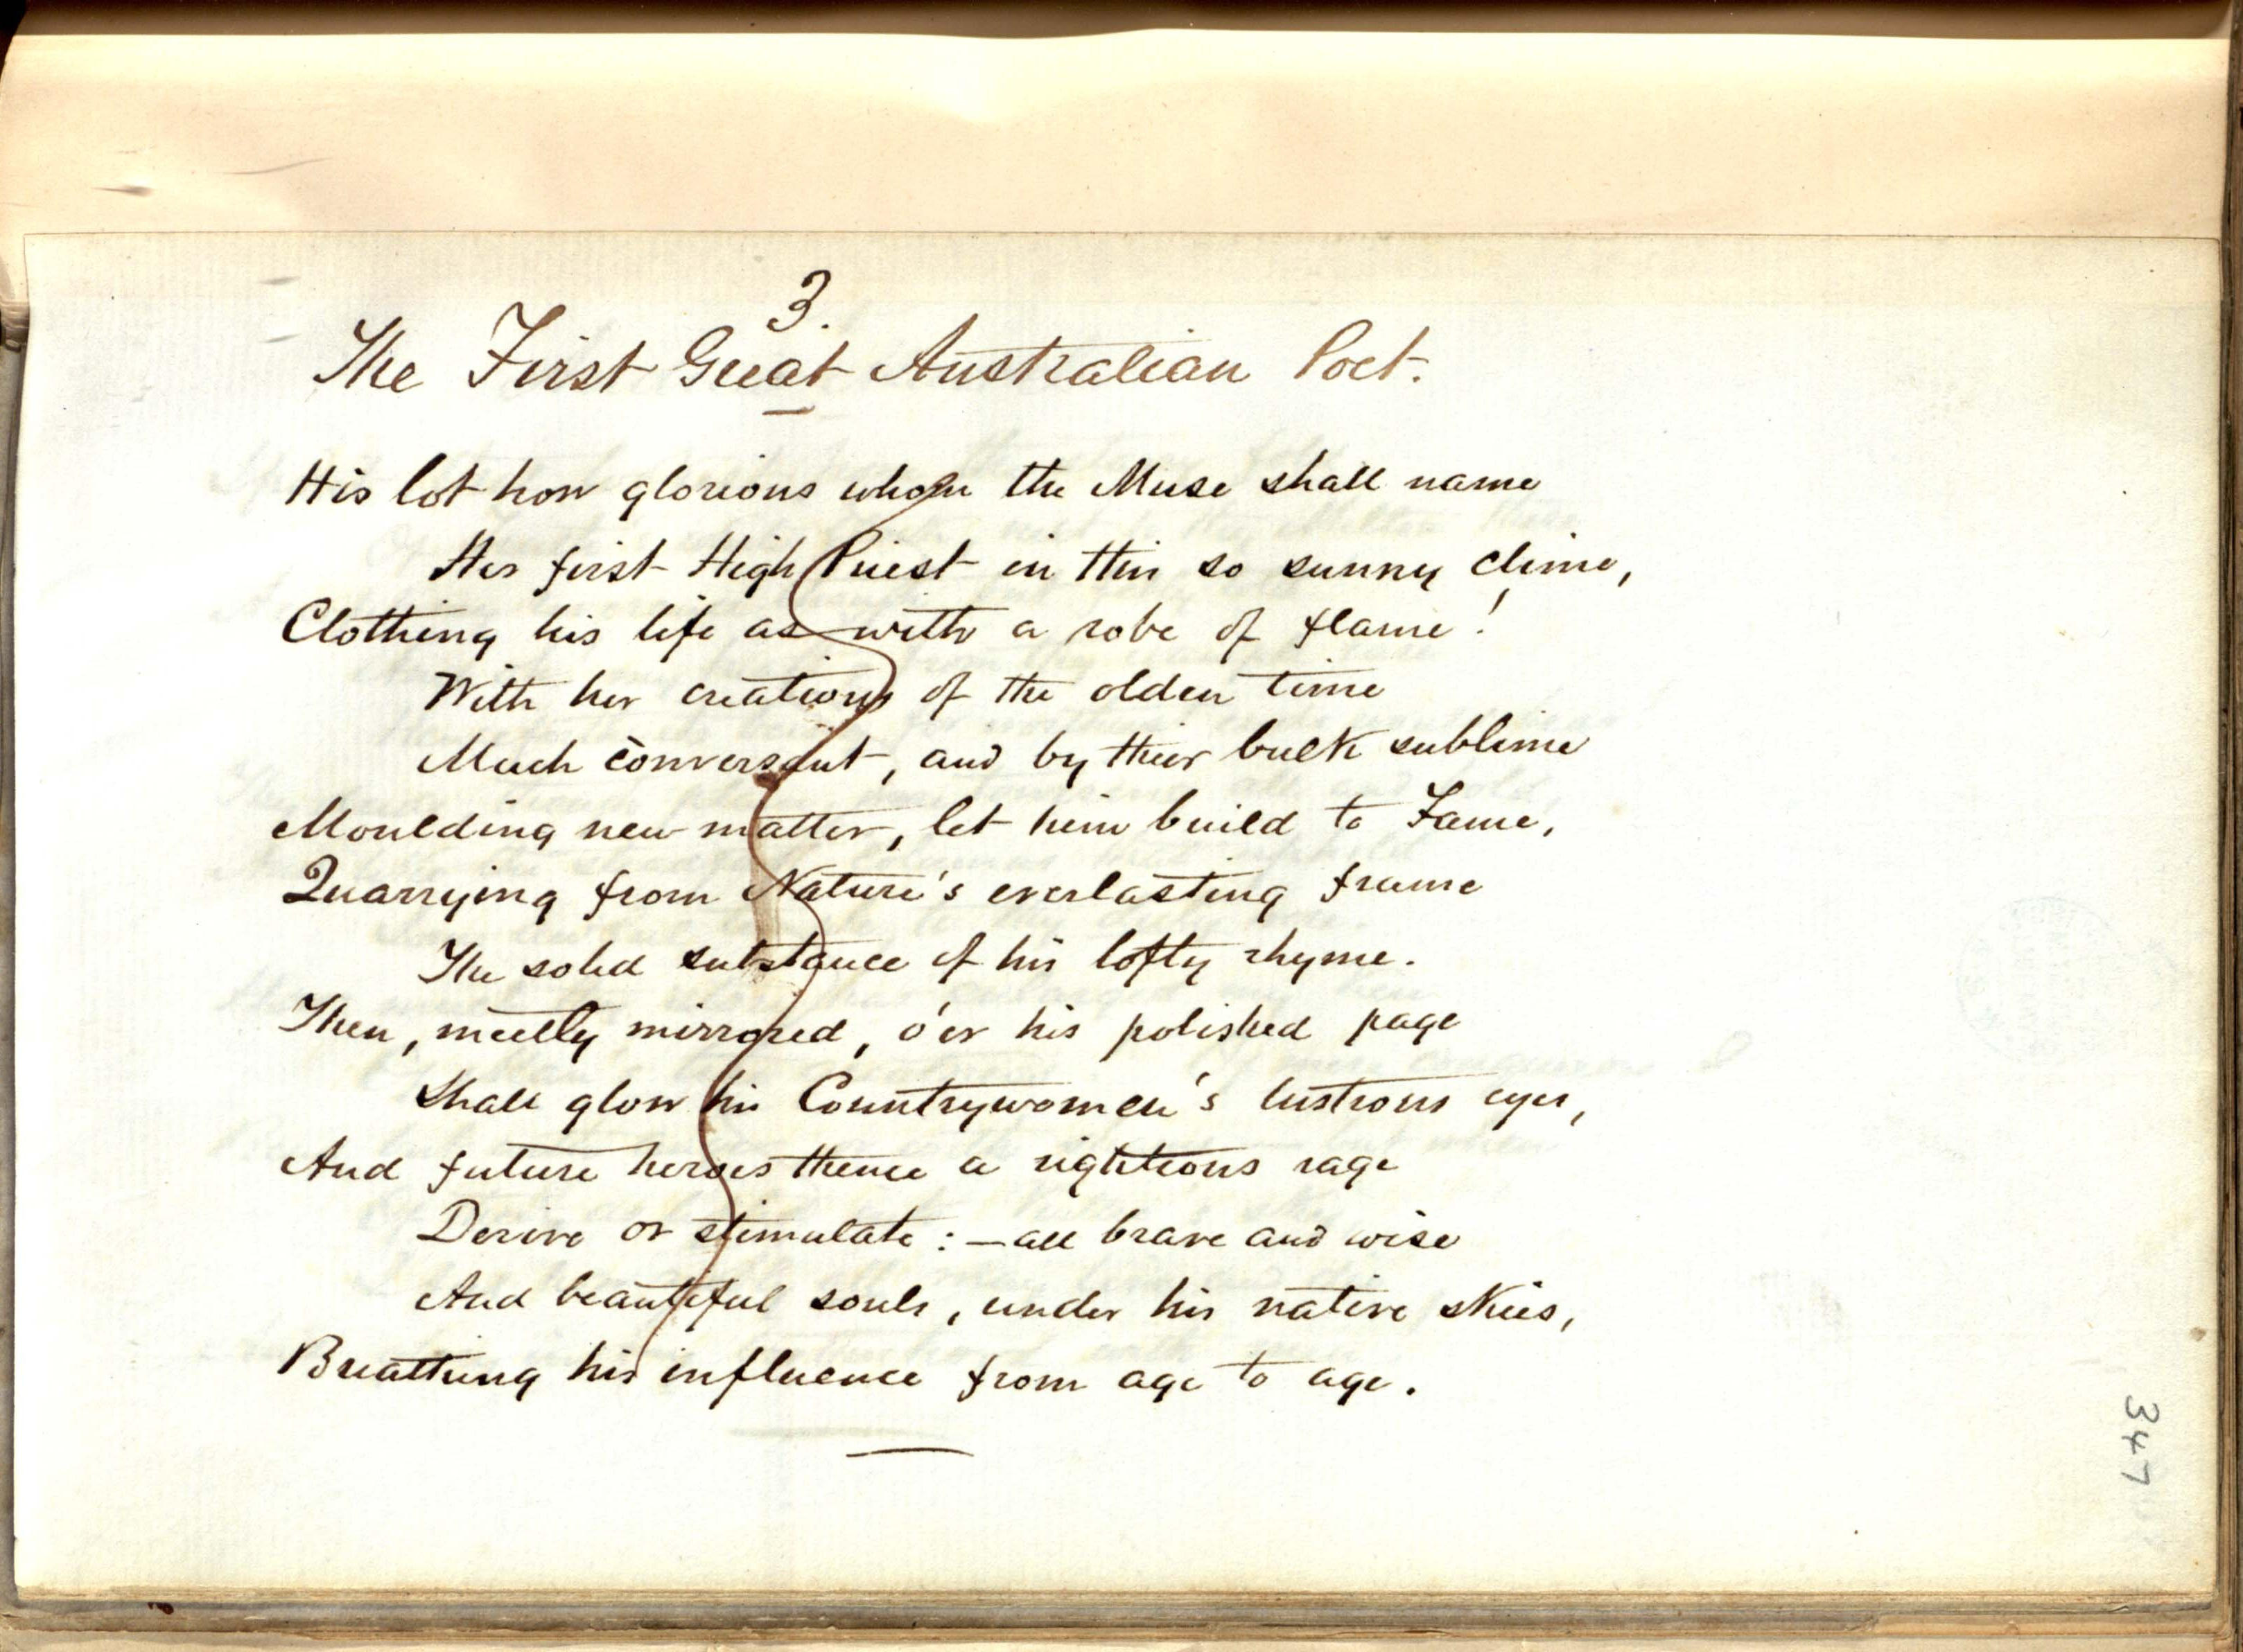 3.
The First Great Australian Poet.
His lot how glorious whom the Muse shall name
Her first High Priest in this so sunny clime,
Clothing his life as with a robe of flame!
With her creations of the olden time
Much conversant, and by their bulk sublime
Moulding new matter, let him build to Fame,
Quarrying from Nature's everlasting frame
The solid substance of his lofty rhyme.
Then, meetly mirrored, o'er his polished page
Shall glow his Countrywomen's lustrous eyes,
And future heroes thence a righteous rage
Derive or stimulate:—all brave and wise
And beautiful souls, under his native skies,
Breathing his influence from age to age.
347